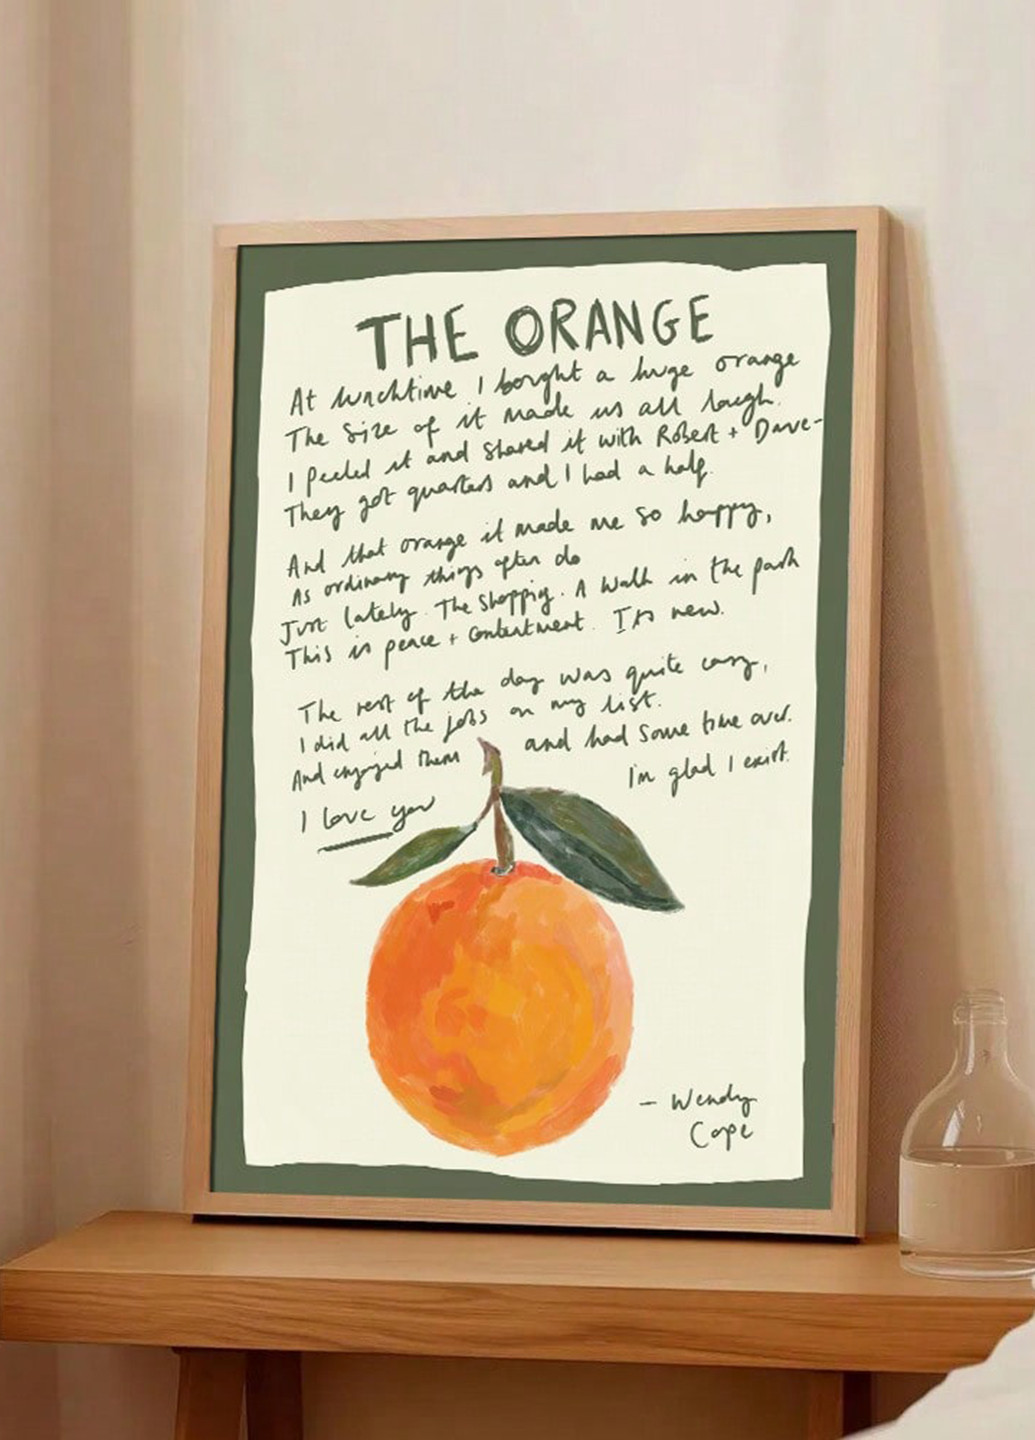 THE ORANGE
At lunchtime I bought a huge orange
The size of it made us all laugh.
I peeled it and shared it with Robert + Dave-
They got quarters and I had a half.
And that orange it made me so happy,
As ordinary things often do
Just lately. The Shopping. A walk in the park
This is peace + contentment. It's new.
The rest of the day was quite easy,
I did all the jobs on my list.
And enjoyed them and had some time over.
I love you I'm glad I exist.
- Wendy
Cope